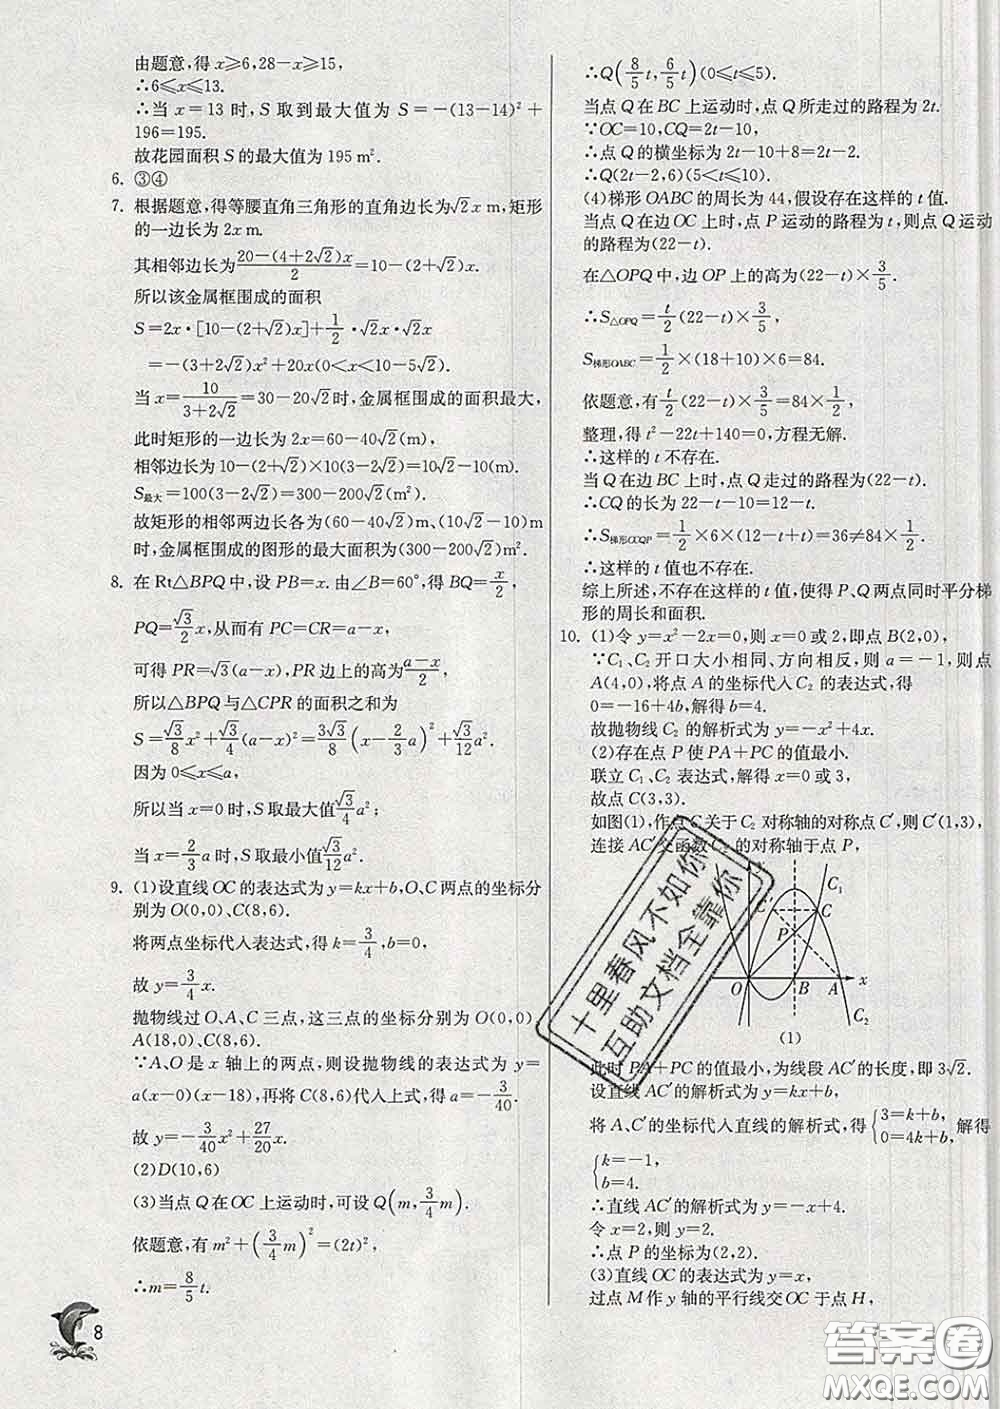 由题意,得 x⩾6,28-x⩾15,
∴6⩽x⩽13.
∴当 x=13 时,S 取到最大值为 S=-(13-14)²+
196=195.
故花园面积 S 的最大值为 195 m².
6. ③④
7. 根据题意,得等腰直角三角形的直角边长为√2x m,矩形
的一边长为 2x m.
其相邻边长为(20-(4+2√2)x)/2=10-(2+√2)x.
所以该金属框围成的面积
S=2x·[10-(2+√2)x]+1/2·√2x·√2x
=-(3+2√2)x²+20x(0<x<10-5√2).
当 x=10/(3+2√2)=30-20√2时,金属框围成的面积最大,
此时矩形的一边长为 2x=60-40√2(m),
相邻边长为 10-(2+√2)×10(3-2√2)=10√2-10(m).
S最大=100(3-2√2)=300-200√2(m²).
故矩形的相邻两边长各为(60-40√2)m、(10√2-10)m
时,金属框围成的图形的面积最大,为(300-200√2)m².
8. 在 Rt△BPQ 中,设 PB=x. 由∠B=60°,得 BQ=x/2,
PQ=√3/2x,从而有 PC=CR=a-x,
可得 PR=√3(a-x),PR 边上的高为(a-x)/2,
所以△BPQ 与△CPR 的面积之和为
S=√3/8x²+√3/4(a-x)²=3√3/8(x-2/3a)²+√3/12a².
因为 0⩽x⩽a,
所以当 x=0 时,S 取最大值√3/4a²;
当 x=2/3a 时,S 取最小值√3/12a².
9. (1)设直线 OC 的表达式为 y=kx+b,O、C 两点的坐标分
别为 O(0,0)、C(8,6).
将两点坐标代入表达式,得 k=3/4,b=0,
故 y=3/4x.
抛物线过 O、A、C 三点,这三点的坐标分别为 O(0,0)、
A(18,0)、C(8,6).
∵A、O 是 x 轴上的两点,则设抛物线的表达式为 y=
a(x-0)(x-18),再将 C(8,6)代入上式,得 a=-3/40.
故 y=-3/40x²+27/20x.
(2)D(10,6)
(3)当点 Q 在 OC 上运动时,可设 Q(m,3/4m).
依题意,有 m²+(3/4m)²=(2t)²,
∴m=8/5t.
8
∴Q(8/5t,6/5t)(0⩽t⩽5).
当点 Q 在 BC 上运动时,点 Q 所走过的路程为 2t.
∵OC=10,CQ=2t-10,
∴点 Q 的横坐标为 2t-10+8=2t-2.
∴Q(2t-2,6)(5<t⩽10).
(4)梯形 OABC 的周长为 44,假设存在这样的 t 值.
当点 Q 在边 OC 上时,点 P 运动的路程为 t,则点 Q 运动
的路程为(22-t).
在△OPQ 中,边 OP 上的高为(22-t)×3/5.
∴S△OPQ=t/2(22-t)×3/5,
S梯形OABC=1/2×(18+10)×6=84.
依题意,有t/2(22-t)×3/5=84×1/2,
整理,得 t²-22t+140=0,方程无解.
∴这样的 t 不存在.
当 Q 在边 BC 上时,点 Q 走过的路程为(22-t).
∴CQ 的长为 22-t-10=12-t.
∴S梯形OCQP=1/2×6×(12-t+t)=36≠84×1/2.
∴这样的 t 值也不存在.
综上所述,不存在这样的 t 值,使得 P、Q 两点同时平分梯
形的周长和面积.
10. (1)令 y=x²-2x=0,则 x=0 或 2,即点 B(2,0),
∵C₁、C₂ 开口大小相同、方向相反,则 a=-1,则点
A(4,0),将点 A 的坐标代入 C₂ 的表达式,得
0=-16+4b,解得 b=4.
故抛物线 C₂ 的解析式为 y=-x²+4x.
(2)存在点 P 使 PA+PC 的值最小.
联立 C₁、C₂ 表达式,解得 x=0 或 3,
故点 C(3,3).
如图(1),作点 C 关于 C₂ 对称轴的对称点 C′,则 C′(1,3),
连接 AC′交函数 C₂ 的对称轴于点 P,
C₁
C
P
O
B
A
x
C₂
(1)
此时 PA+PC 的值最小,为线段 AC′的长度,即 3√2.
设直线 AC′的解析式为 y=kx+b,
将 A、C′的坐标代入直线的解析式,得{3=k+b, 0=4k+b, 解得
{k=-1, b=4.
∴直线 AC′的解析式为 y=-x+4.
令 x=2,y=2.
∴点 P 的坐标为(2,2).
(3)直线 OC 的表达式为 y=x,
过点 M 作 y 轴的平行线交 OC 于点 H,
十里春风不如你
互助文档全靠你
答案圈
MXQE.COM